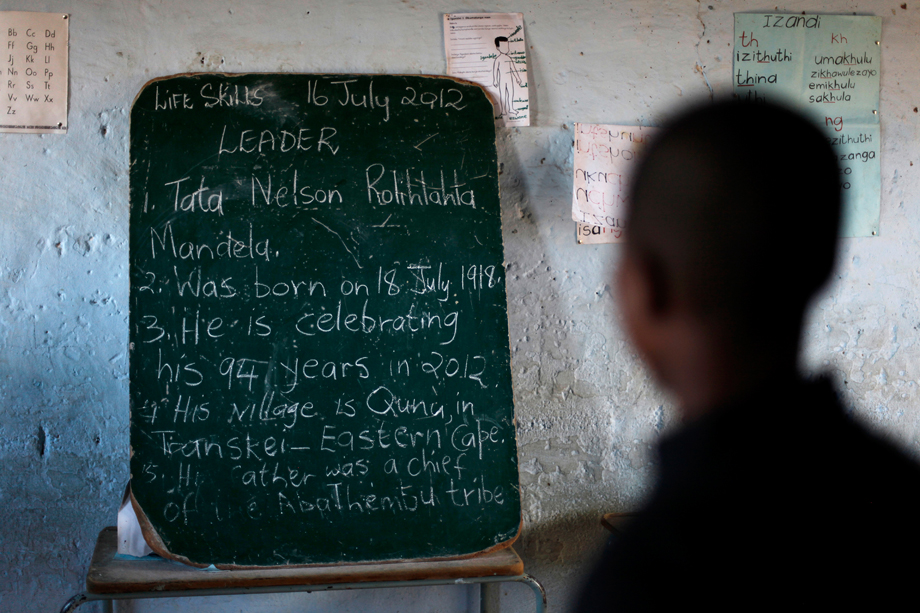 Bb Cc Dd
Ff Gg Hh
Jj Kk Ll
Nn Oo Pp
Rr Ss Tt
Vv Ww Xx
Zz
LIFE SKILLS 16 July 2012
LEADER
1. Tata Nelson Rolihlahla
Mandela.
2. Was born on 18 July 1918.
3. He is celebrating
his 94 years in 2012
4 His village is Qunu, in
Transkei – Eastern Cape.
5. Hi ather was a chief
of e AbaThembu tribe
Izandi
th
izithuthi
thina
kh
umakhulu
zikhawulezayo
emikhulu
sakhula
ng
izithuthi
zanga